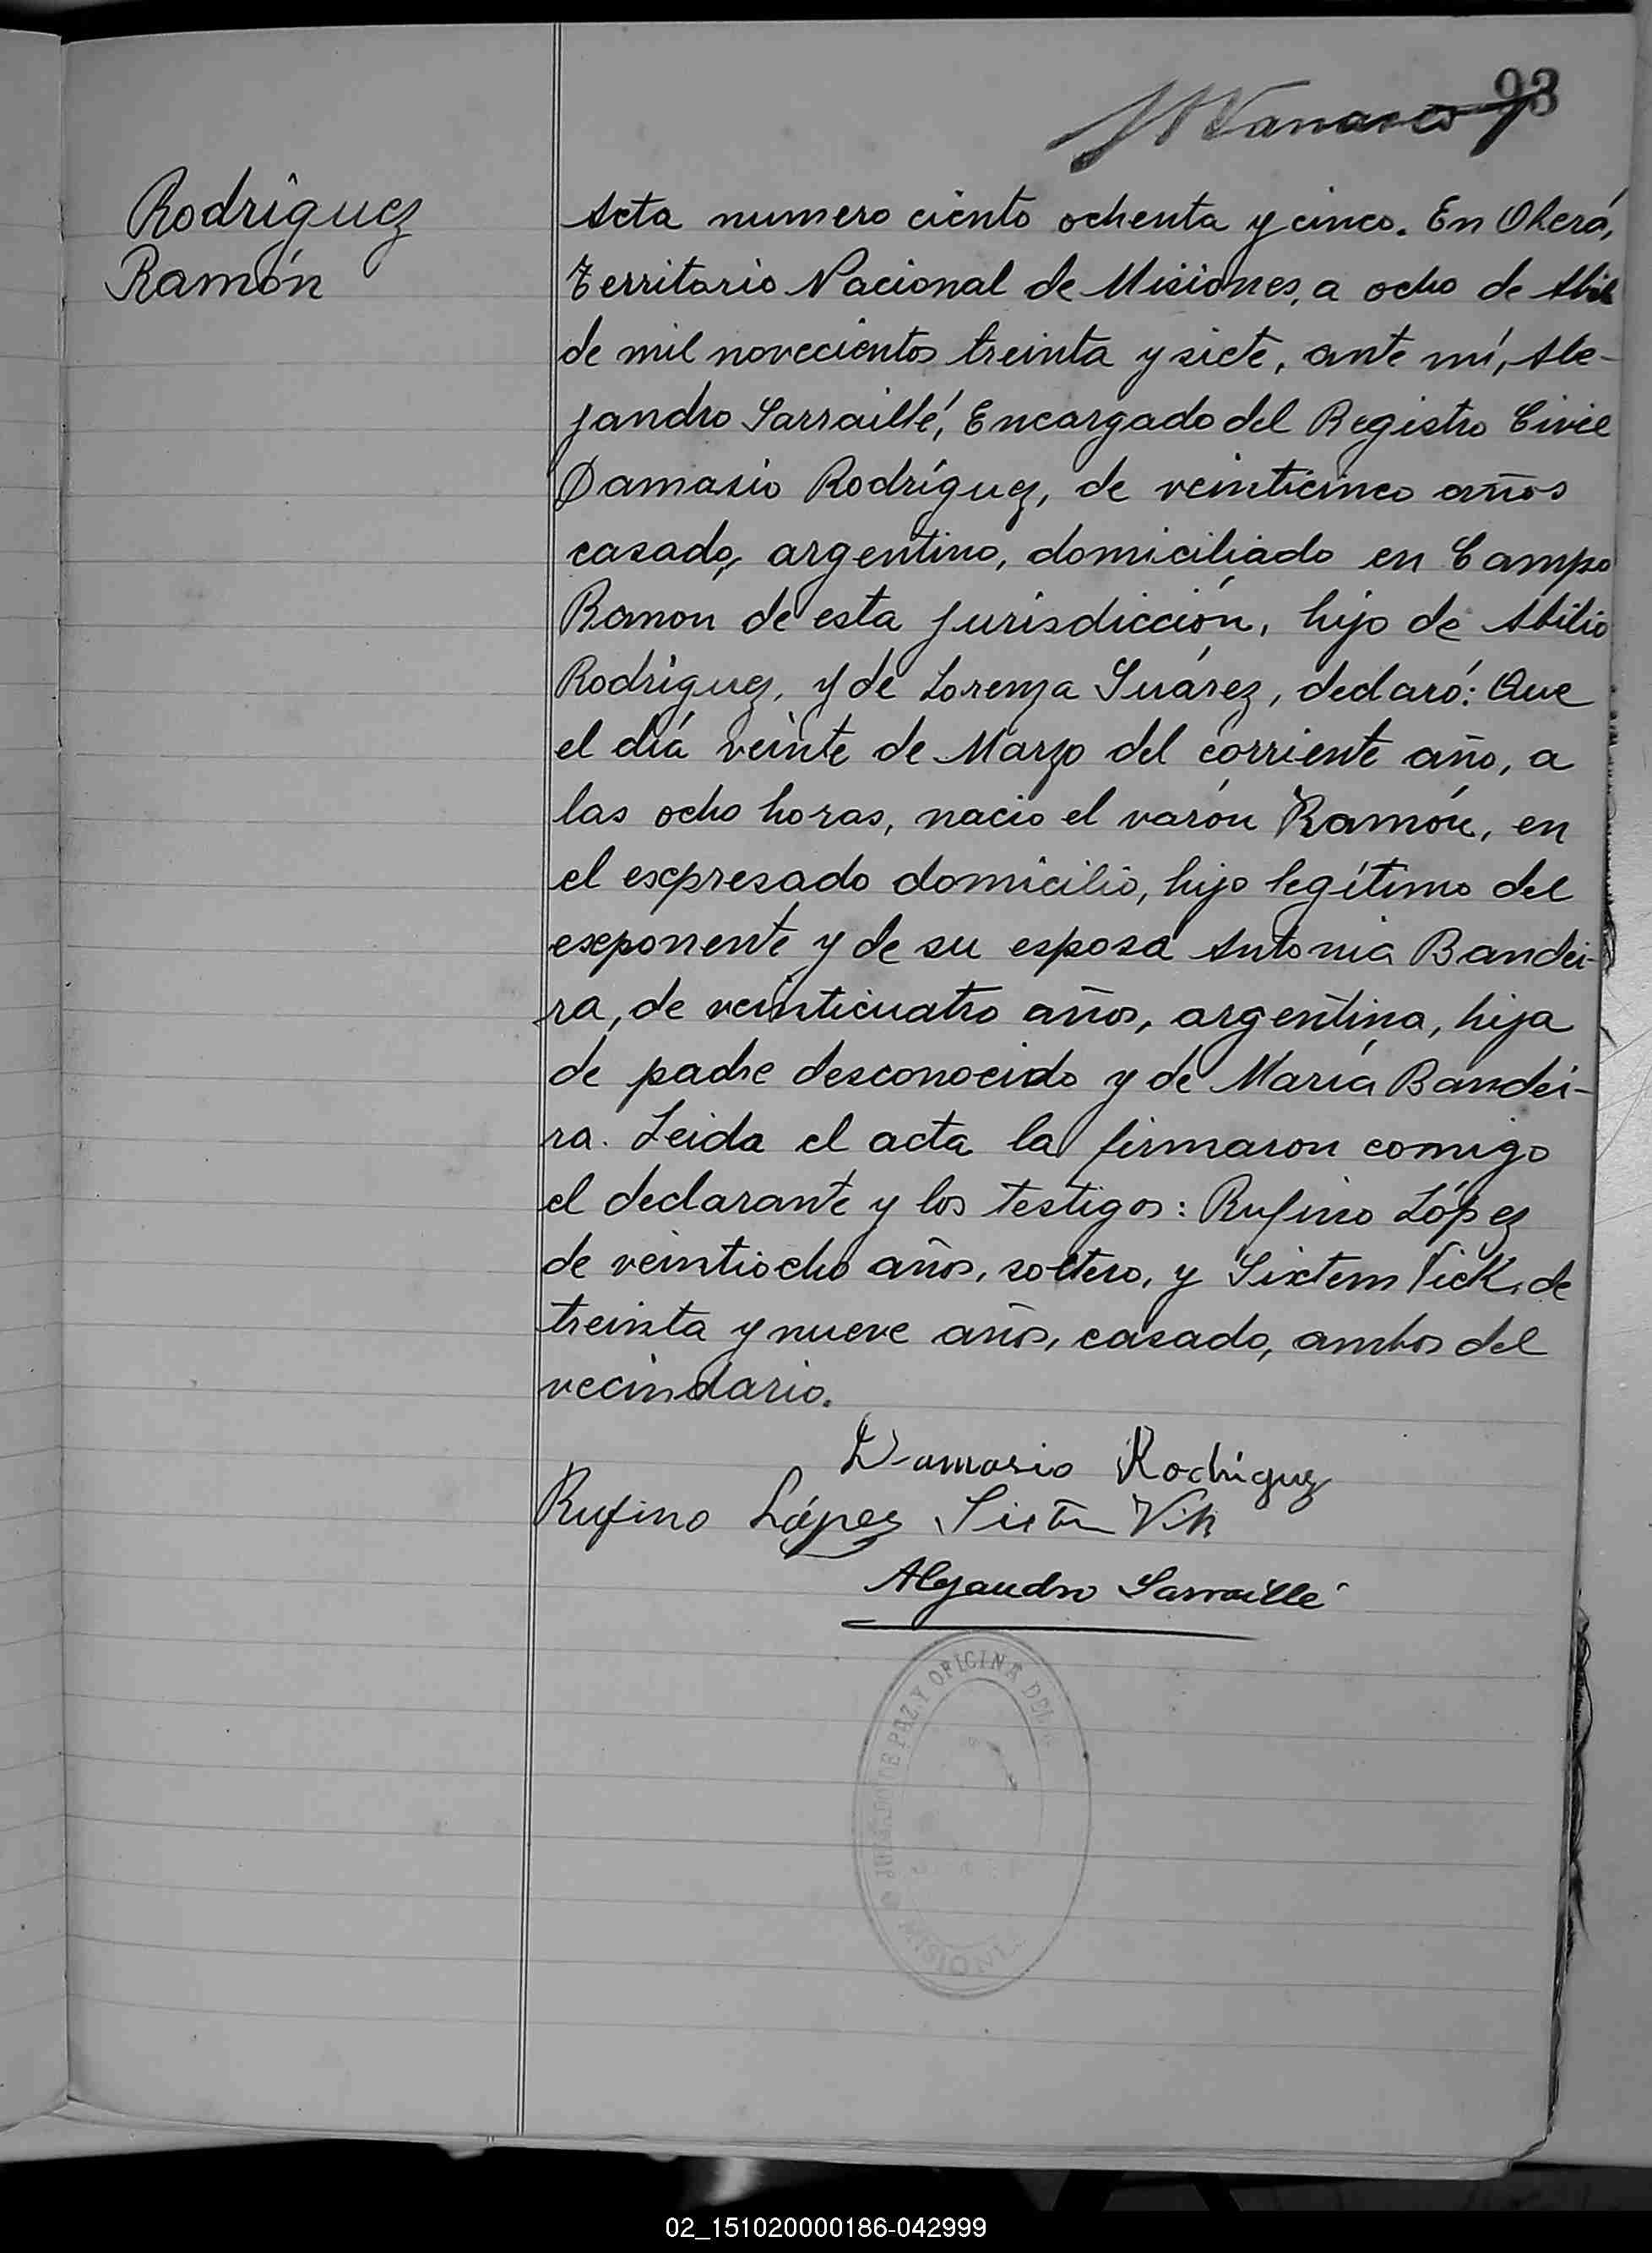 93
Rodríguez
Ramón
Acta numero ciento ochenta y cinco. En Oberá,
Territorio Nacional de Misiones, a ocho de Abril
de mil novecientos treinta y siete, ante mí, Ale-
jandro Sarraillé, Encargado del Registro Civil
Damasio Rodríguez, de veinticinco años
casado, argentino, domiciliado en Campo
Ramón de esta jurisdicción, hijo de Abilio
Rodríguez, y de Lorenza Suárez, declaró: Que
el día veinte de Marzo del corriente año, a
las ocho horas, nació el varón Ramón, en
el expresado domicilio, hijo legítimo del
exponente y de su esposa Antonia Bandei-
ra, de veinticuatro años, argentina, hija
de padre desconocido y de María Bandei-
ra. Leida el acta la firmaron comigo
el declarante y los testigos: Rufino López
de veintiocho años, soltero, y Sixtem Vick, de
treinta y nueve años, casado, ambos del
vecindario.
Damasio Rodríguez
Rufino López Vik
Alejandro Sarraillé
JUZGADO DE PAZ Y OFICINA DEL
MISIONES
02_151020000186-042999